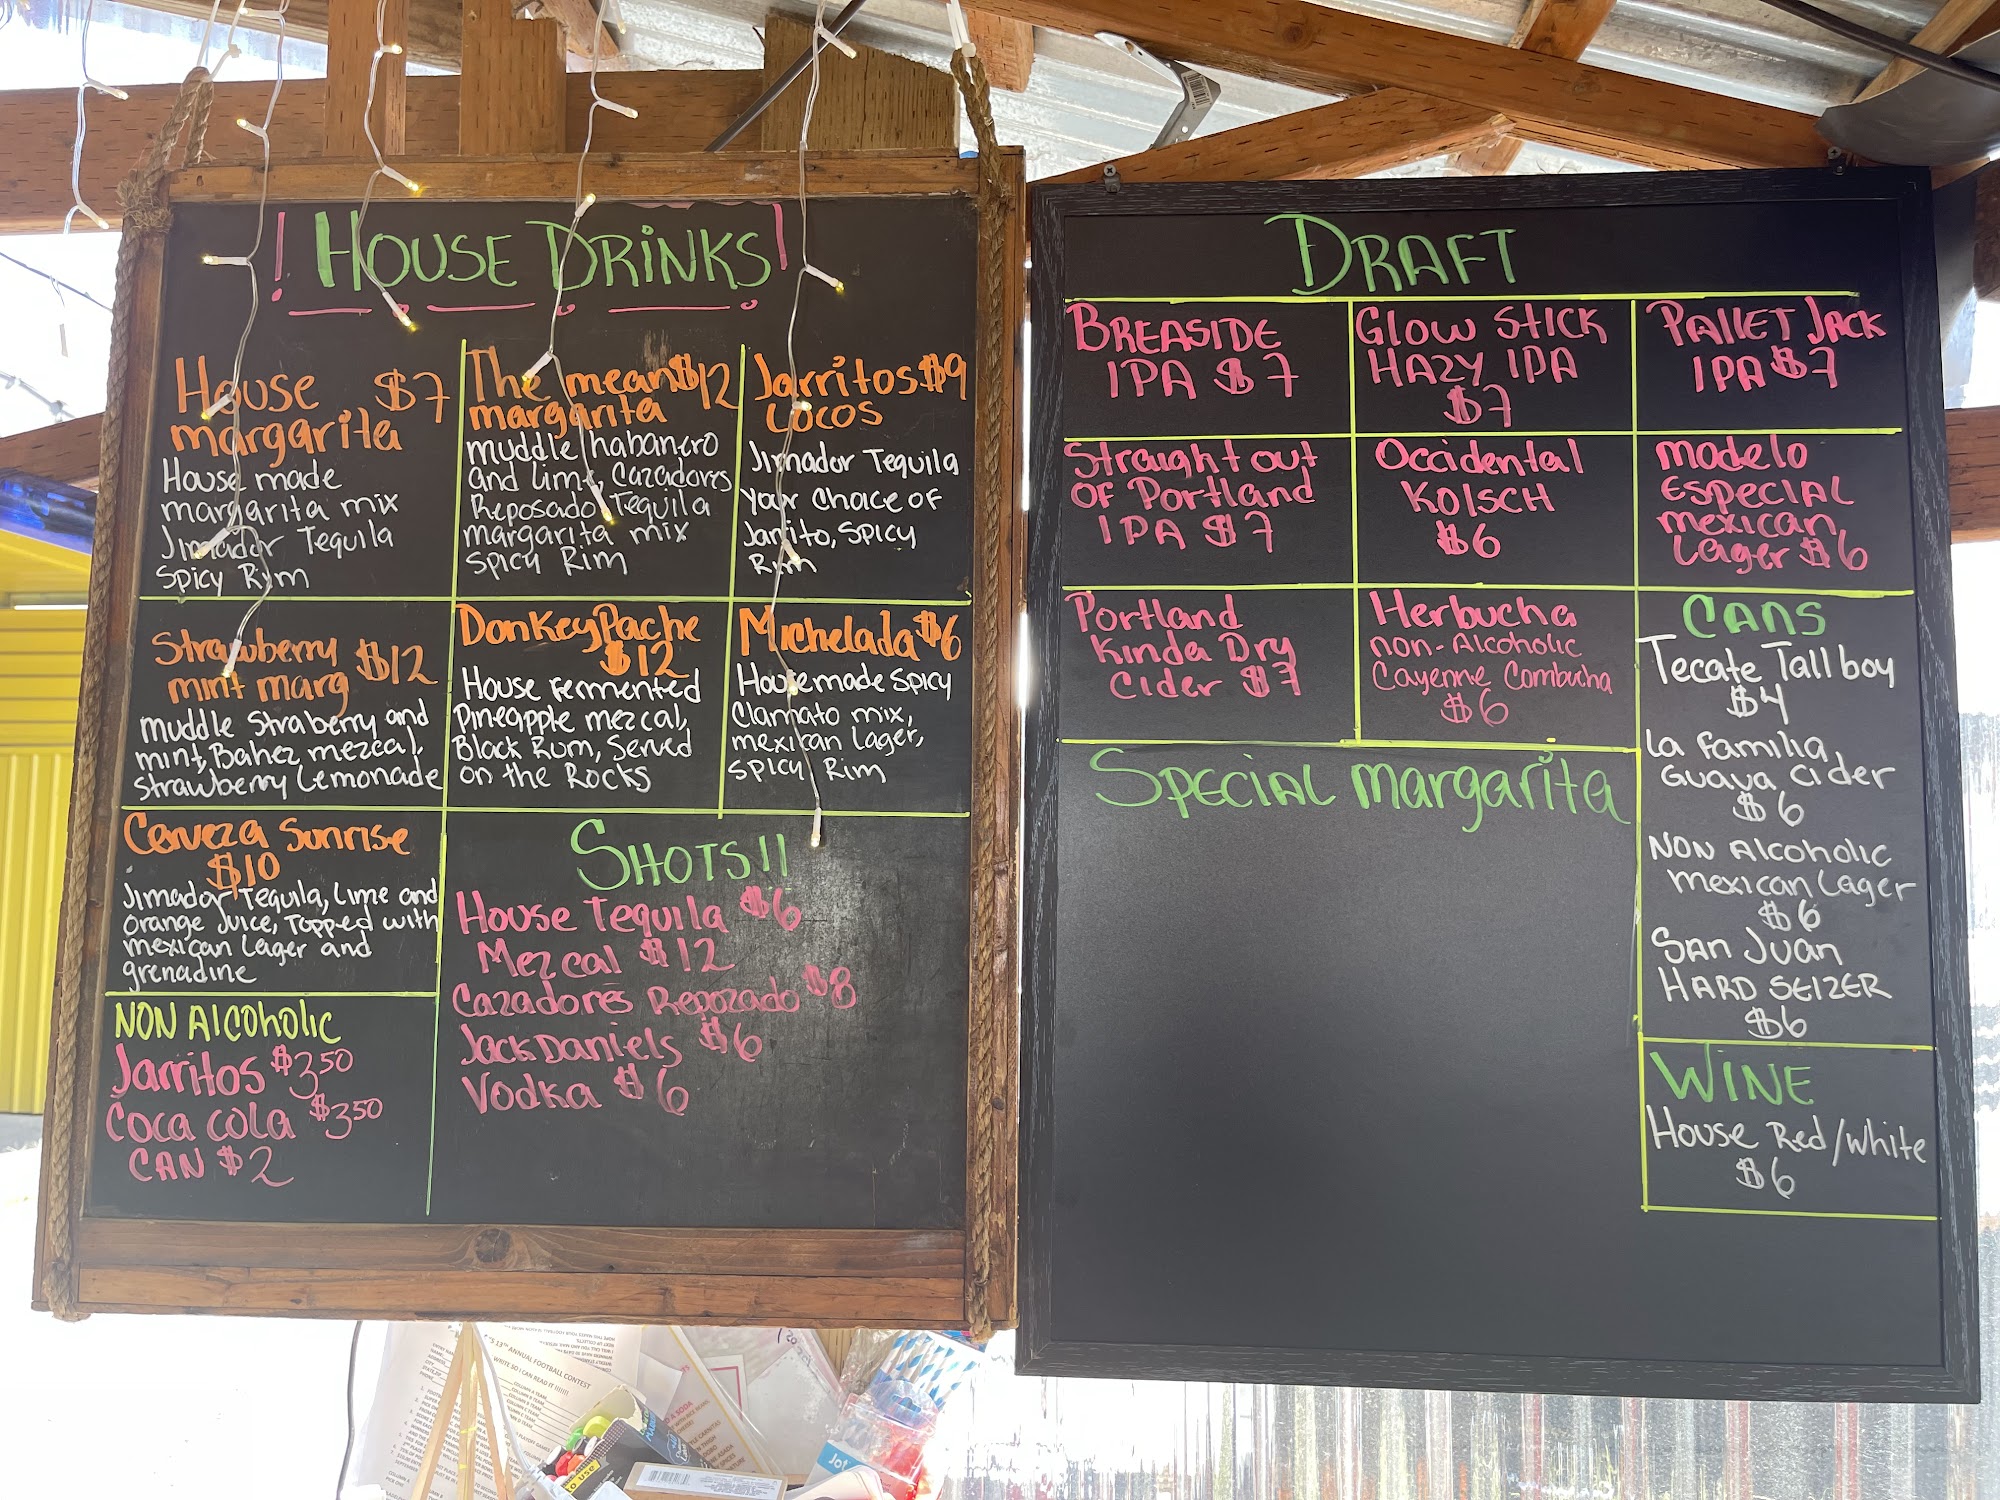 ! HOUSE DRINKS!
House $7
margarita
House made
margarita mix
Jimador Tequila
Spicy Rym
The mean $12
margarita
muddle habanero
and lime, Cazadores
Reposado Tequila
margarita mix
Spicy Rim
Jarritos $9
LOCOS
Jimador Tequila
your choice of
Jarrito, Spicy
Rim
Strawberry $12
mint marg
muddle Straberry and
mint, Bahez mezcal,
Strawberry Lemonade
Donkey Pache
$12
House Fermented
Pineapple mezcal,
Black Rum, Served
on the Rocks
Michelada $6
Housemade Spicy
Clamato mix,
mexican Lager,
Spicy Rim
Cerveza Sunrise
$10
Jimador Tequila, Lime and
orange Juice, Topped with
mexican Lager and
grenadine
NON Alcoholic
Jarritos $3.50
Coca cola $3.50
CAN $2
SHOTS!!
House Tequila $6
Mezcal $12
Cazadores Repozado $8
Jack Daniels $6
Vodka $6
DRAFT
BREASIDE
IPA $7
GLOW STICK
HAZY IPA
$7
PALLET JACK
IPA $7
Straight out
OF Portland
IPA $7
Occidental
KOLSCH
$6
modelo
ESPECIAL
mexican
Lager $6
Portland
Kinda Dry
Cider $7
Herbucha
non-Alcoholic
Cayenne Combucha
$6
CANS
Tecate Tall boy
$4
La Familia,
Guava Cider
$6
NON Alcoholic
mexican Lager
$6
SAN JUAN
HARD SEIZER
$6
WINE
House Red/White
$6
SPECIAL margarita
'S 13TH ANNUAL FOOTBALL CONTEST
WRITE SO I CAN READ IT !!!!!!!